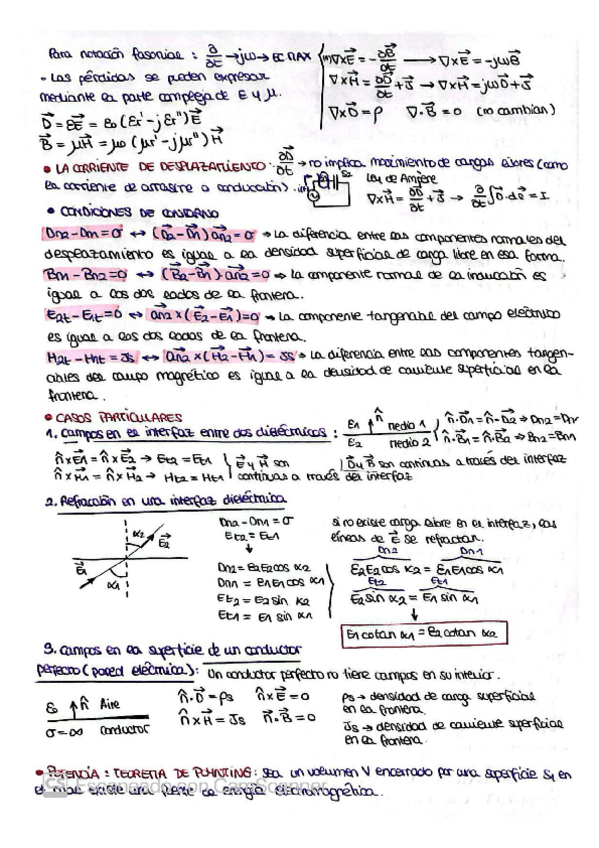 Para notación fasorial : ∂/∂t → jω → EC. MAX { ∇×E⃗ = -∂B⃗/∂t → ∇×E⃗ = -jωB⃗
• Las pérdidas se pueden expresar ∇×H⃗ = ∂D⃗/∂t + J⃗ → ∇×H⃗ = jωD⃗ + J⃗
mediante la parte compleja de ε y μ. ∇×D⃗ = ρ ∇·B⃗ = 0 (no cambian)
D⃗ = εE⃗ = ε0 (εr' - jεr'') E⃗
B⃗ = μH⃗ = μ0 (μr' - jμr'') H⃗
• LA CORRIENTE DE DESPLAZAMIENTO: ∂D⃗/∂t → no implica movimiento de cargas libres (como
la corriente de arrastre o conducción). Ley de Ampère
∇×H⃗ = ∂D⃗/∂t + J⃗ → ∂/∂t ∫D⃗·ds⃗ = I
• CONDICIONES DE CONTORNO
Dn2 - Dn1 = σ ↔ (D⃗2 - D⃗n) an2 = σ → La diferencia entre las componentes normales del
desplazamiento es igual a la densidad superficial de carga libre en esa forma.
Bn1 - Bn2 = 0 ↔ (B⃗2 - B⃗n) an2 = 0 → La componente normal de la inducción es
igual a los dos lados de la frontera.
E2t - E1t = 0 ↔ an2 × (E⃗2 - E⃗1) = 0 → La componente tangencial del campo eléctrico
es igual a los dos lados de la frontera.
H2t - H1t = Js ↔ an2 × (H⃗2 - H⃗1) = Js → La diferencia entre las componentes tangen-
ciales del campo magnético es igual a la densidad de corriente superficial en la
frontera.
• CASOS PARTICULARES
1. Campos en la interfaz entre dos dieléctricos : ε1 n̂ medio 1 { n̂·D⃗1 = n̂·D⃗2 → Dn2 = Dn1
ε2 medio 2 n̂·B⃗1 = n̂·B⃗2 → Bn2 = Bn1
n̂×E⃗1 = n̂×E⃗2 → Et2 = Et1 } E⃗ y H⃗ son | D⃗ y B⃗ son continuas a través del interfaz
n̂×H⃗1 = n̂×H⃗2 → Ht2 = Ht1 continuas a través del interfaz
2. Refracción en una interfaz dieléctrica
Dn2 - Dn1 = σ si no existe carga libre en el interfaz, las
Et2 = Et1 líneas de E⃗ se refractan.
α2 E⃗2 ↓ Dn2 Dn1
Dn2 = ε2E2 cos α2 ε2E2 cos α2 = ε1E1 cos α1
E⃗1 α1 Dn1 = ε1E1 cos α1 Et2 Et1
Et2 = E2 sin α2 E2 sin α2 = E1 sin α1
Et1 = E1 sin α1
ε1 cotan α1 = ε2 cotan α2
3. Campos en la superficie de un conductor
perfecto (pared eléctrica): Un conductor perfecto no tiene campos en su interior.
ε0 n̂ Aire n̂·D⃗ = ρs n̂×E⃗ = 0 ρs → densidad de carga superficial
en la frontera.
σ = ∞ conductor n̂×H⃗ = Js n̂·B⃗ = 0 Js → densidad de corriente superficial
en la frontera.
• POTENCIA : TEOREMA DE POYNTING: Sea un volumen V encerrado por una superficie S, en
el cual existe una fuente de energía electromagnética.
CS Escaneado con CamScanner